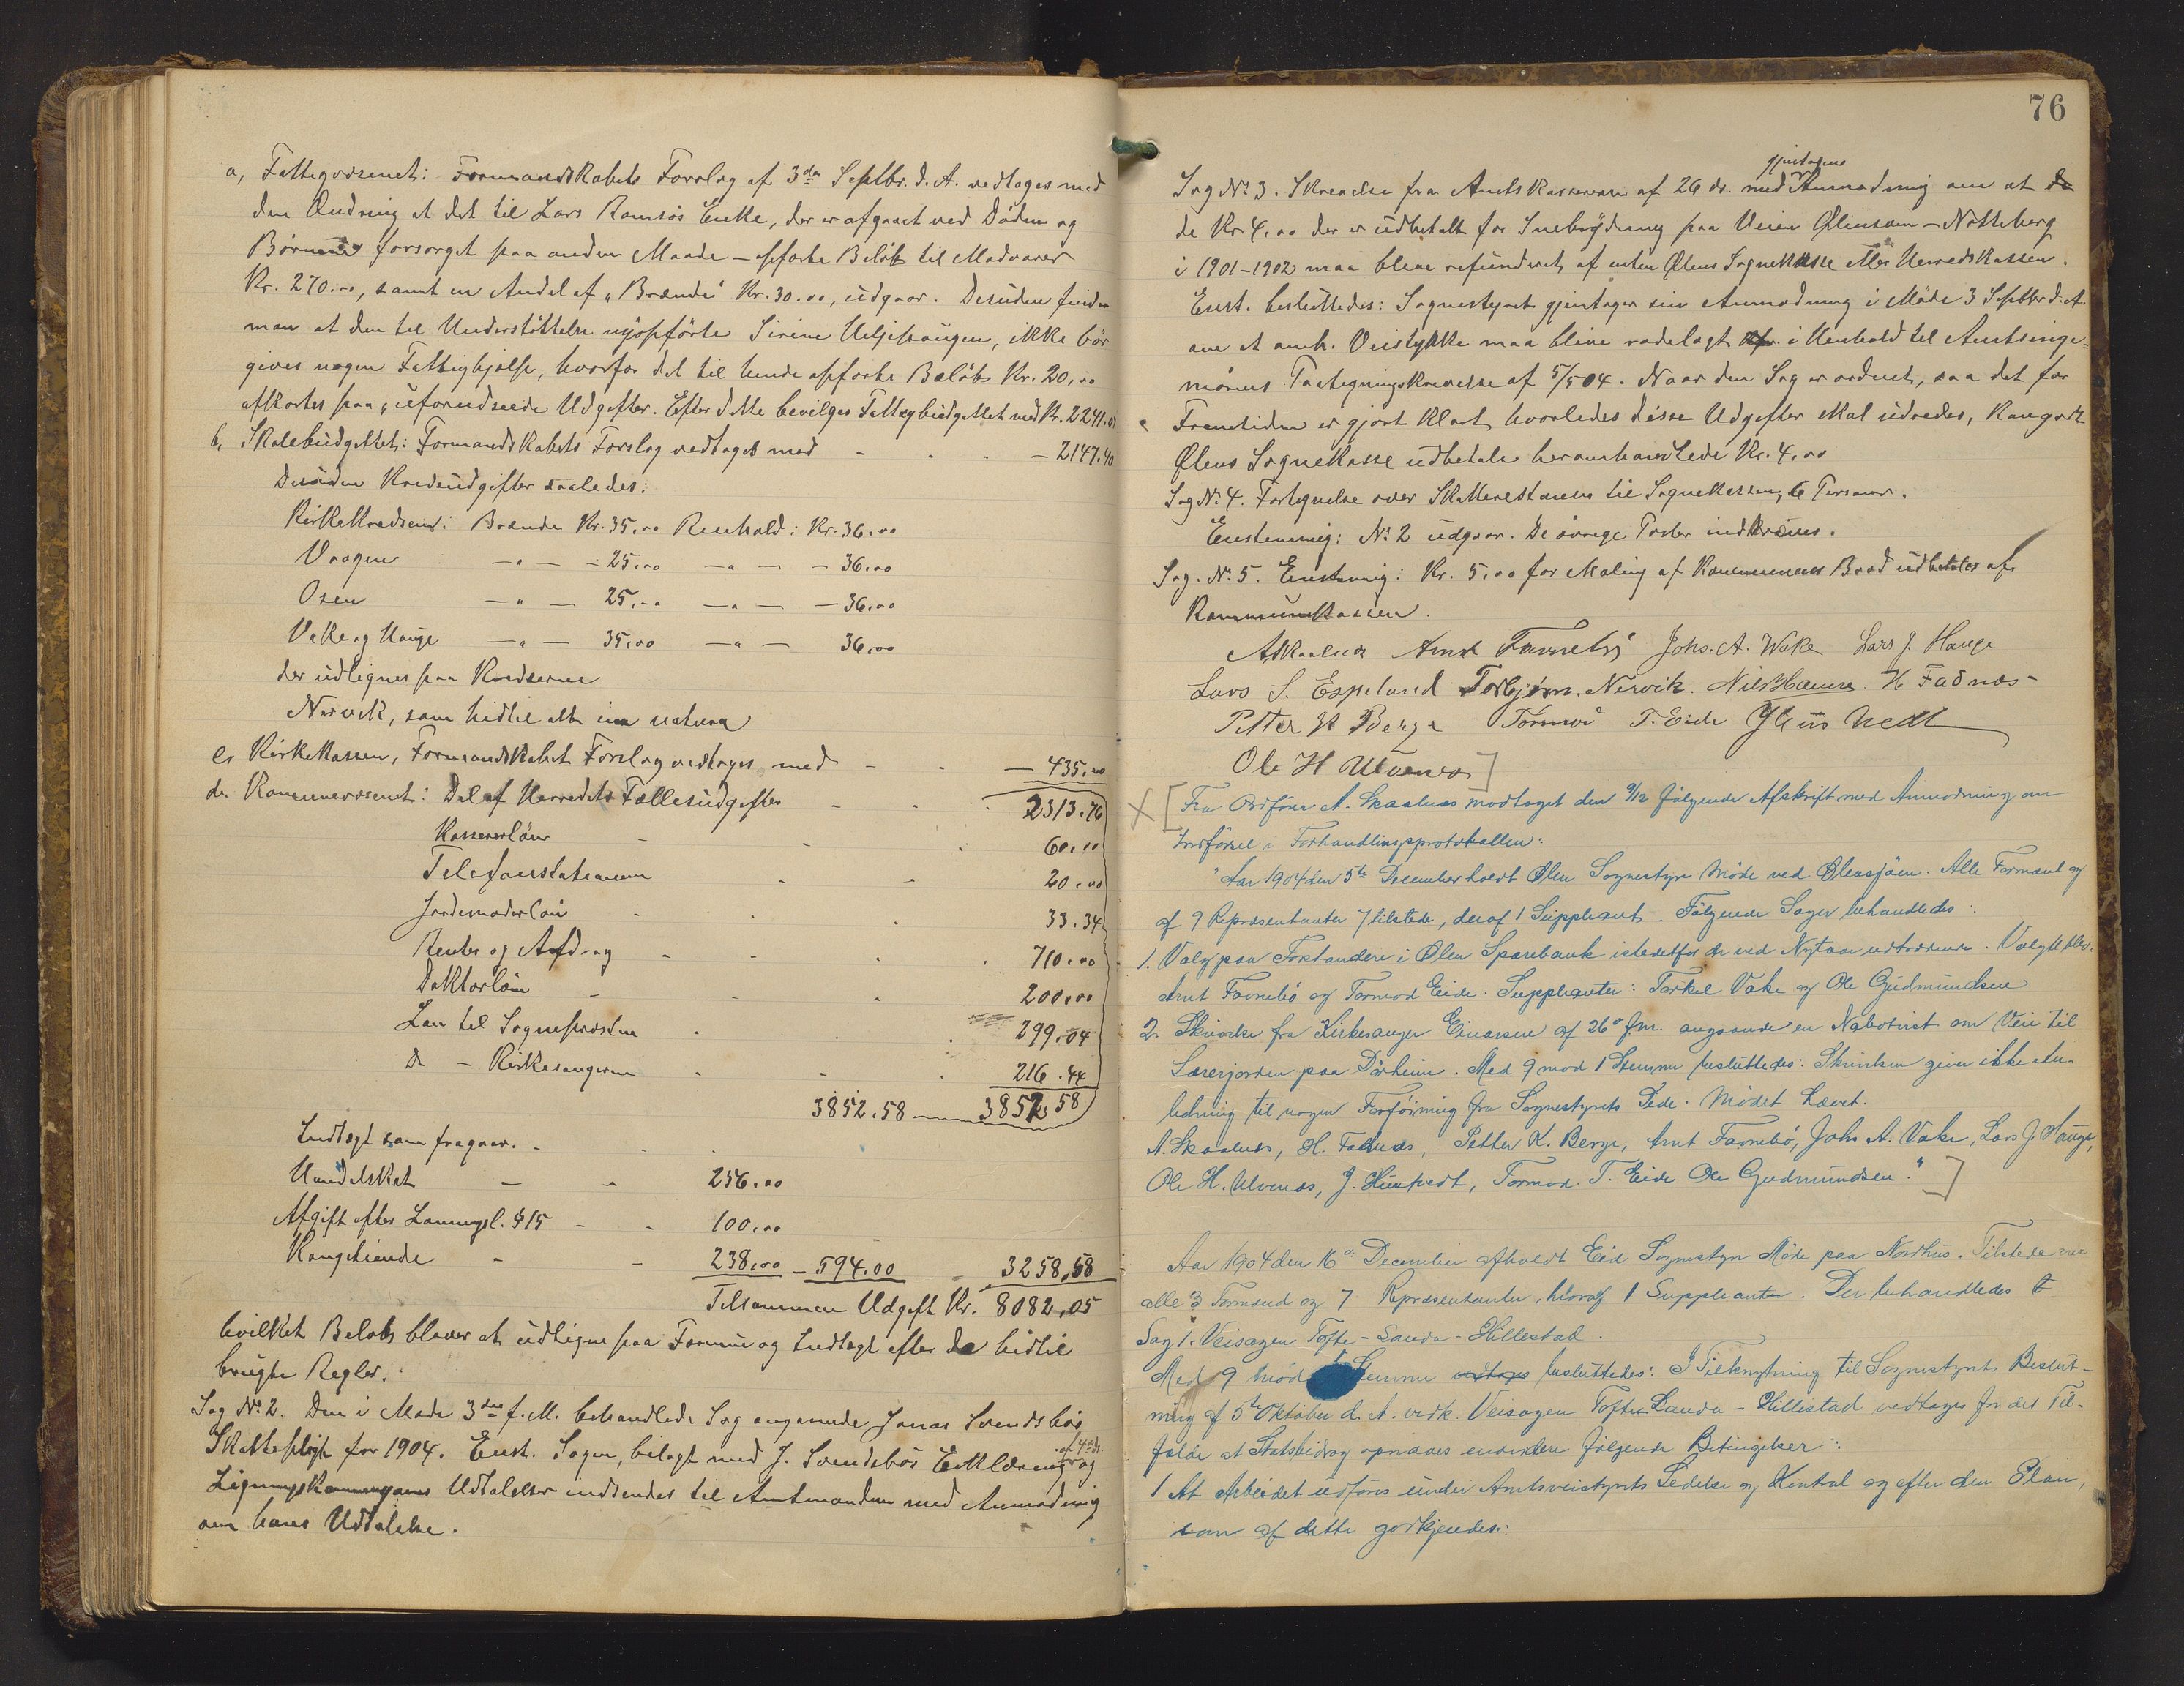 a, Fattigvæsenet: Formandskabets Forslag af 3die Septbr. d. A. vedtages med
den Ændring at det til Lars Ramsøs Enke, der er afgaaet ved Døden og
Børnene forsørget paa anden Maade – opførte Beløb til Madvarer
Kr. 270.00, samt en Andel af „Brænde" Kr. 30.00, udgaar. Desuden finder
man at den til Understøttelse nyopførte Sirine Heljehaugen, ikke bør
gives nogen Fattighjælp, hvorfor det til hende opførte Beløb Kr. 20,00
afkortes paa „uforudseede Udgifter. Efter dette bevilges Fattigbudgettet med Kr. 2241.01
b, Skolebudgettet: Formandskabets Forslag vedtaget med - - - 2147.40
Desuden Kredsudgifter saaledes:
Kirkekredsen: Brænde Kr. 35.00 Renhold: Kr. 36.00
Vaagen -"- - 25.00 -"- - 36.00
Osen -"- 25.00 -"- - 36.00
Vake og Hauge -"- 35.00 -"- 36.00
der udlignes paa Kredserne
Nærvik, som hidtil alt in natura
c, Kirkekassen, Formandskabets Forslag vedtages med - - - 435.00
d, Kommunevæsenet: Del af Herredets Fællesudgifter - - 2313.76
Kassererløn - - - 60.00
Telefonstationen - - 20.00
Jordemoderløn - - - 33.34
Renter og Afdrag - - - 710.00
Doktorløn - - - 200.00
Løn til Sognepresten - - 299.04
Do - Kirkesangeren - - - 216.44
3852.58 — 3852.58
Indtægt som fragaar. - - -
Handelskat - - 256.00
Afgift efter Lovens § 15 - - 100.00
Kongetiende - - 238.00 - 594.00 3258.58
Tilsammen Udgift Kr. 8082.05
hvilket Beløb bliver at udligne paa Formue og Indtægt efter de hidtil
brugte Regler.
Sag No. 2. Den i Møde 3die f. M. behandlede Sag angaaende Jonas Svendsbøs
Skattepligt for 1904. Enst. Sagen, bilagt med J. Svendsbøs Erklæring af 4 ds. og
Ligningskommissionens Udtalelser indsendes til Amtmanden med Anmodning
om hans Udtalelse.
76
Sag No. 3. Skrivelse fra Amtskassereren af 26 ds. med gjentagene Anmodning om at
de Kr. 4.00 der er udbetalt for Snebrydning paa Veien Ølensøen – Notteberg
i 1901–1902 maa blive refunderet af enten Ølens Sognekasse eller Herredskassen.
Enst. besluttedes: Sognestyret gjentager sin Anmodning i Møde 3 Septbr d. A.
om at omh. Veistykke maa blive nedelagt i Henhold til Amtsinge-
niørens Paategningsskrivelse af 5/5 04. Naar den Sag er ordnet, saa det for
Fremtiden er gjort klart hvorledes disse Udgifter skal udredes, kan godt
Ølens Sognekasse udbetale heromhandlede Kr. 4.00
Sag No. 4. Fortegnelse over Skatterestancer til Sognekassen, 6 Personer.
Enstemmig: No. 2 udgaar. De øvrige Poster inddrives.
Sag. No. 5. Enstemmig: Kr. 5.00 for Maling af Kommunens Baad udbetales af
Kommunekassen.
A Skaalnes Arnt Favnebø Johs. A. Wake Lars J. Hauge
Lars S. Espeland Torbjørn. Nervik. Nils Hamre. H Fadnæs –
Petter K Berge Tormod T. Eide J Huustvedt
Ole H Ulvenes ]
X [ Fra Ordfører A. Skaalnes modtaget den 9/12 følgende Afskrift med Anmodning om
Indførsel i Forhandlingsprotokollen:
"Aar 1904 den 5te December holdt Ølen Sognestyre Møde ved Ølensjøen. Alle Formænd og
af 9 Repræsentanter 7 tilstede, deraf 1 Suppleant. Følgende Sager behandledes:
1. Valg paa Forstandere i Ølen Sparebank istedetfor de ved Nytaar udtrædende. Valgt blev:
Arnt Favnebø og Tormod Eide. Suppleanter: Torkel Vake og Ole Gudmundsen
2. Skrivelse fra Kirkesanger Einarsen af 26de f. m. angaaende en Nabotvist om Vei til
Lærerjorden paa Dørheim. Med 9 mod 1 Stemme besluttedes: Skrivelsen giver ikke An-
ledning til nogen Forføining fra Sognestyrets Side. Mødet hævet.
A. Skaalnes, H. Fadnes, Petter K. Berge, Arnt Favnebø, Johs A. Vake, Lars J. Hauge,
Ole H. Ulvenes, J. Huustvedt, Tormod T. Eide Ole Gudmundsen." ]
Aar 1904 den 16de December afholdt Eid Sognestyre Møde paa Nordhus. Tilstede var
alle 3 Formænd og 7 Repræsentanter, hvoraf 1 Suppleanter. Der behandledes
Sag 1. Veisagen Tofte – Sandu – Hillestad.
Med 9 mod 1 Stemme vedtoges besluttedes: I Tilknytning til Sognestyrets Beslut-
ning af 5te Oktober d. A. vedk. Veisagen Tofte Sanda – Hillestad vedtages for det Til-
fælde at Statsbidrag opnaaes endvidere følgende Betingelser:
1 At Arbeidet udføres under Amtsveistyrets Ledelse og Kontrol og efter den Plan,
som af dette godkjendes: